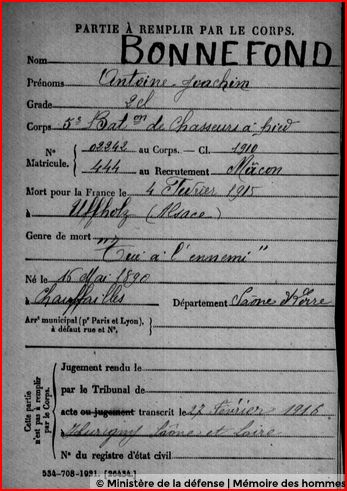 PARTIE À REMPLIR PAR LE CORPS.
Nom BONNEFOND
Prénoms Antoine Joachim
Grade 2 cl
Corps 5e Bat on de Chasseurs à pied
Nos Matricule. { 02242 au Corps. — Cl. 1910
444 au Recrutement Mâcon
Mort pour la France le 4 Février 1915
à Uffholz (Alsace)
Genre de mort "Tué à l'ennemi"
Né le 16 Mai 1890
à Chauffailles Département Saône et Loire
Arrt municipal (pr Paris et Lyon), à défaut rue et N°. }
Cette partie n'est pas à remplir par le Corps.
Jugement rendu le
par le Tribunal de
acte ou jugement transcrit le 27 Février 1916
Saône et Loire
N° du registre d'état civil
534-708-1921. [26434.]
© Ministère de la défense | Mémoire des hommes